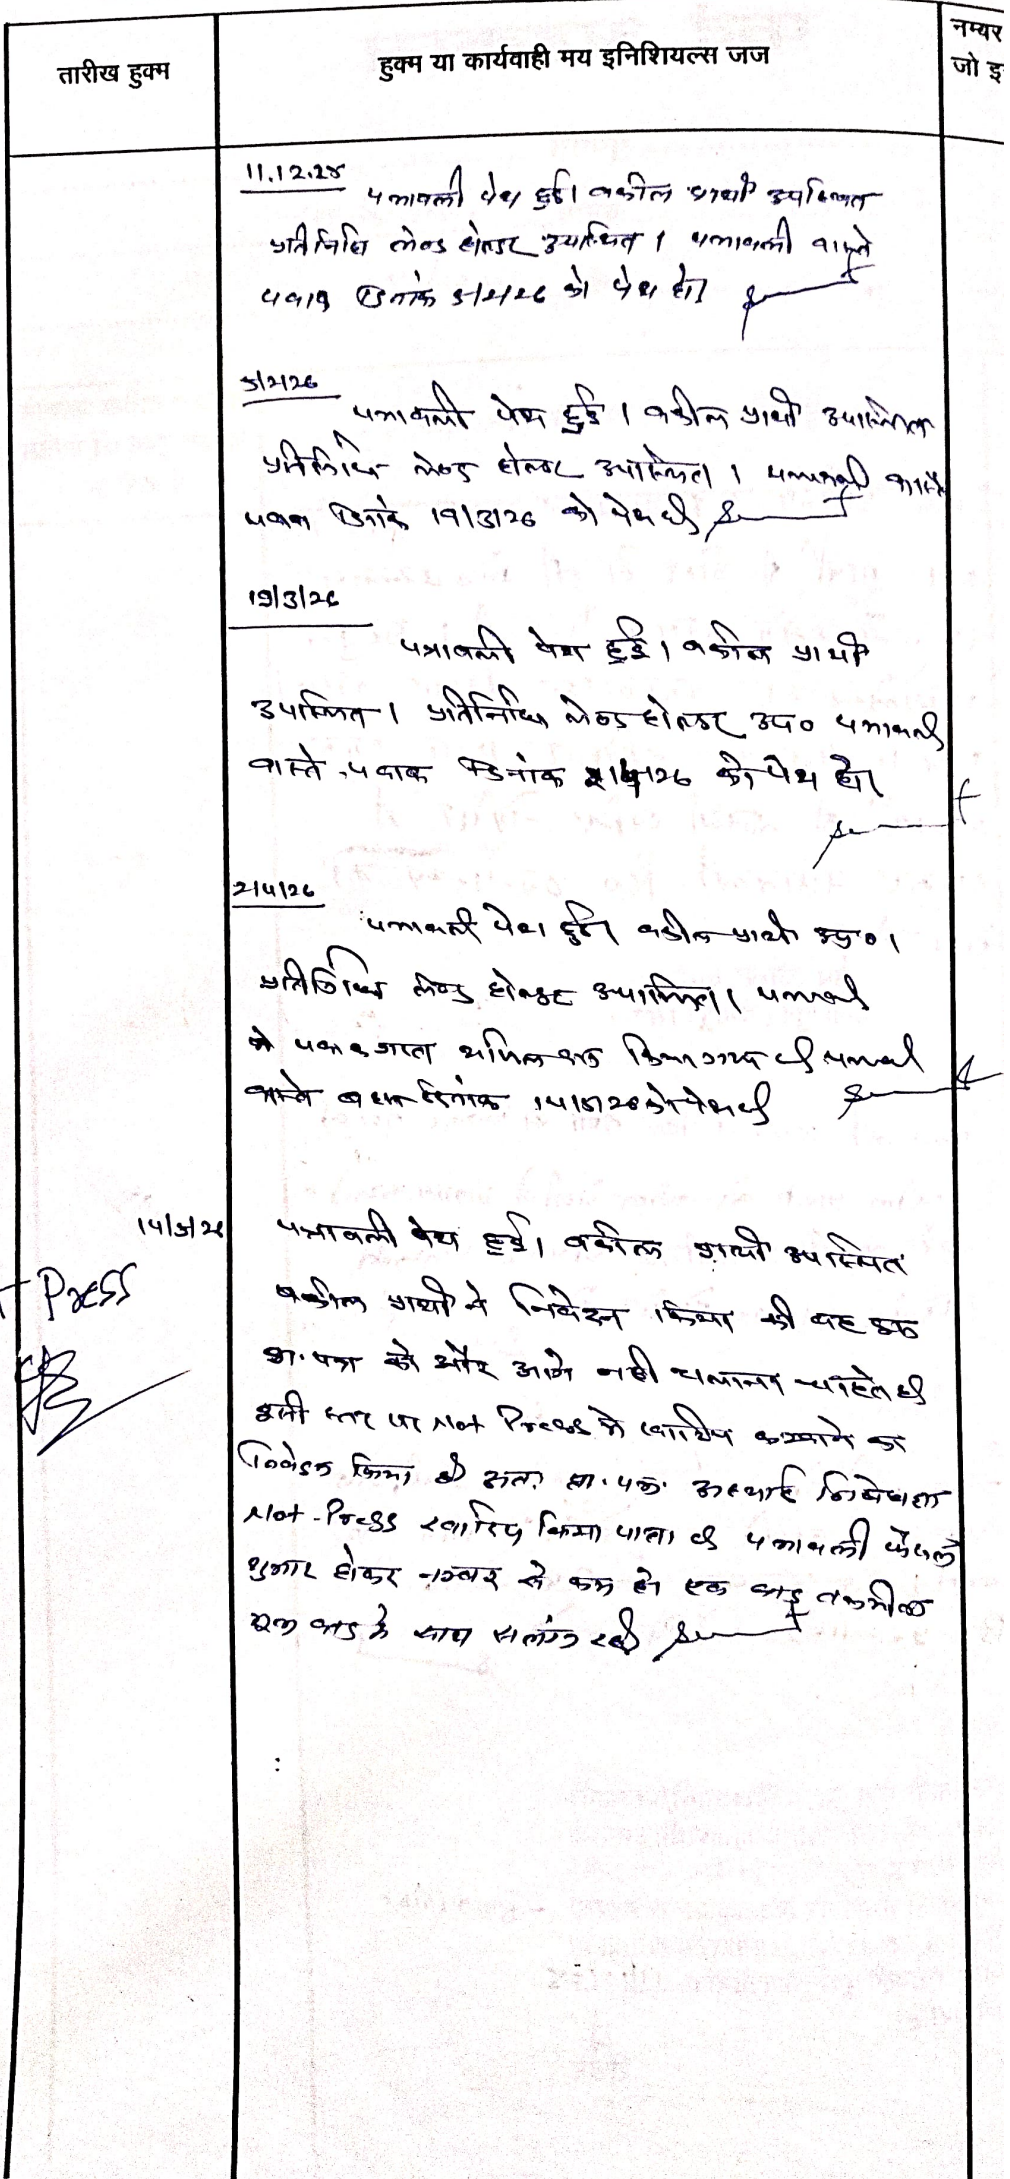 तारीख हुक्म
हुक्म या कार्यवाही मय इनिशियल्स जज
नम्बर
जो इ
11.12.25
पत्रावली पेश हुई। वकील प्रार्थी उपस्थित
प्रतिनिधि लेण्ड होल्डर उपस्थित। पत्रावली वास्ते
जवाब दिनांक 5/2/26 को पेश हो।
5/2/26
पत्रावली पेश हुई। वकील प्रार्थी उपस्थित
प्रतिनिधि लेण्ड होल्डर उपस्थित। पत्रावली वास्ते
जवाब दिनांक 19/3/26 को पेश हो
19/3/26
पत्रावली पेश हुई। वकील प्रार्थी
उपस्थित। प्रतिनिधि लेण्ड होल्डर उप० पत्रावली
वास्ते जवाब दिनांक 2/4/26 को पेश हो।
2/4/26
पत्रावली पेश हुई। वकील प्रार्थी उप०।
प्रतिनिधि लेण्ड होल्डर उपस्थित। पत्रावली
जवाब शामिल किया गया पत्रावली
वास्ते बहस दिनांक 14/5/26 को पेश हो
14/5/26
पत्रावली पेश हुई। वकील प्रार्थी उपस्थित
Press
वकील प्रार्थी ने निवेदन किया की वह इस
प्रा. पत्र को और आगे नही चलाना चाहते है
इसी स्तर पर Not Press मे खारिज करवाने का
निवेदन किया है अतः प्रा. पत्र अस्थाई निषेधाज्ञा
Not-Press खारिज किया जाता है पत्रावली फैसले
शुमार होकर नम्बर से कम हो एक बाद तकमील
मूल वाद के साथ सलंग्न रहे